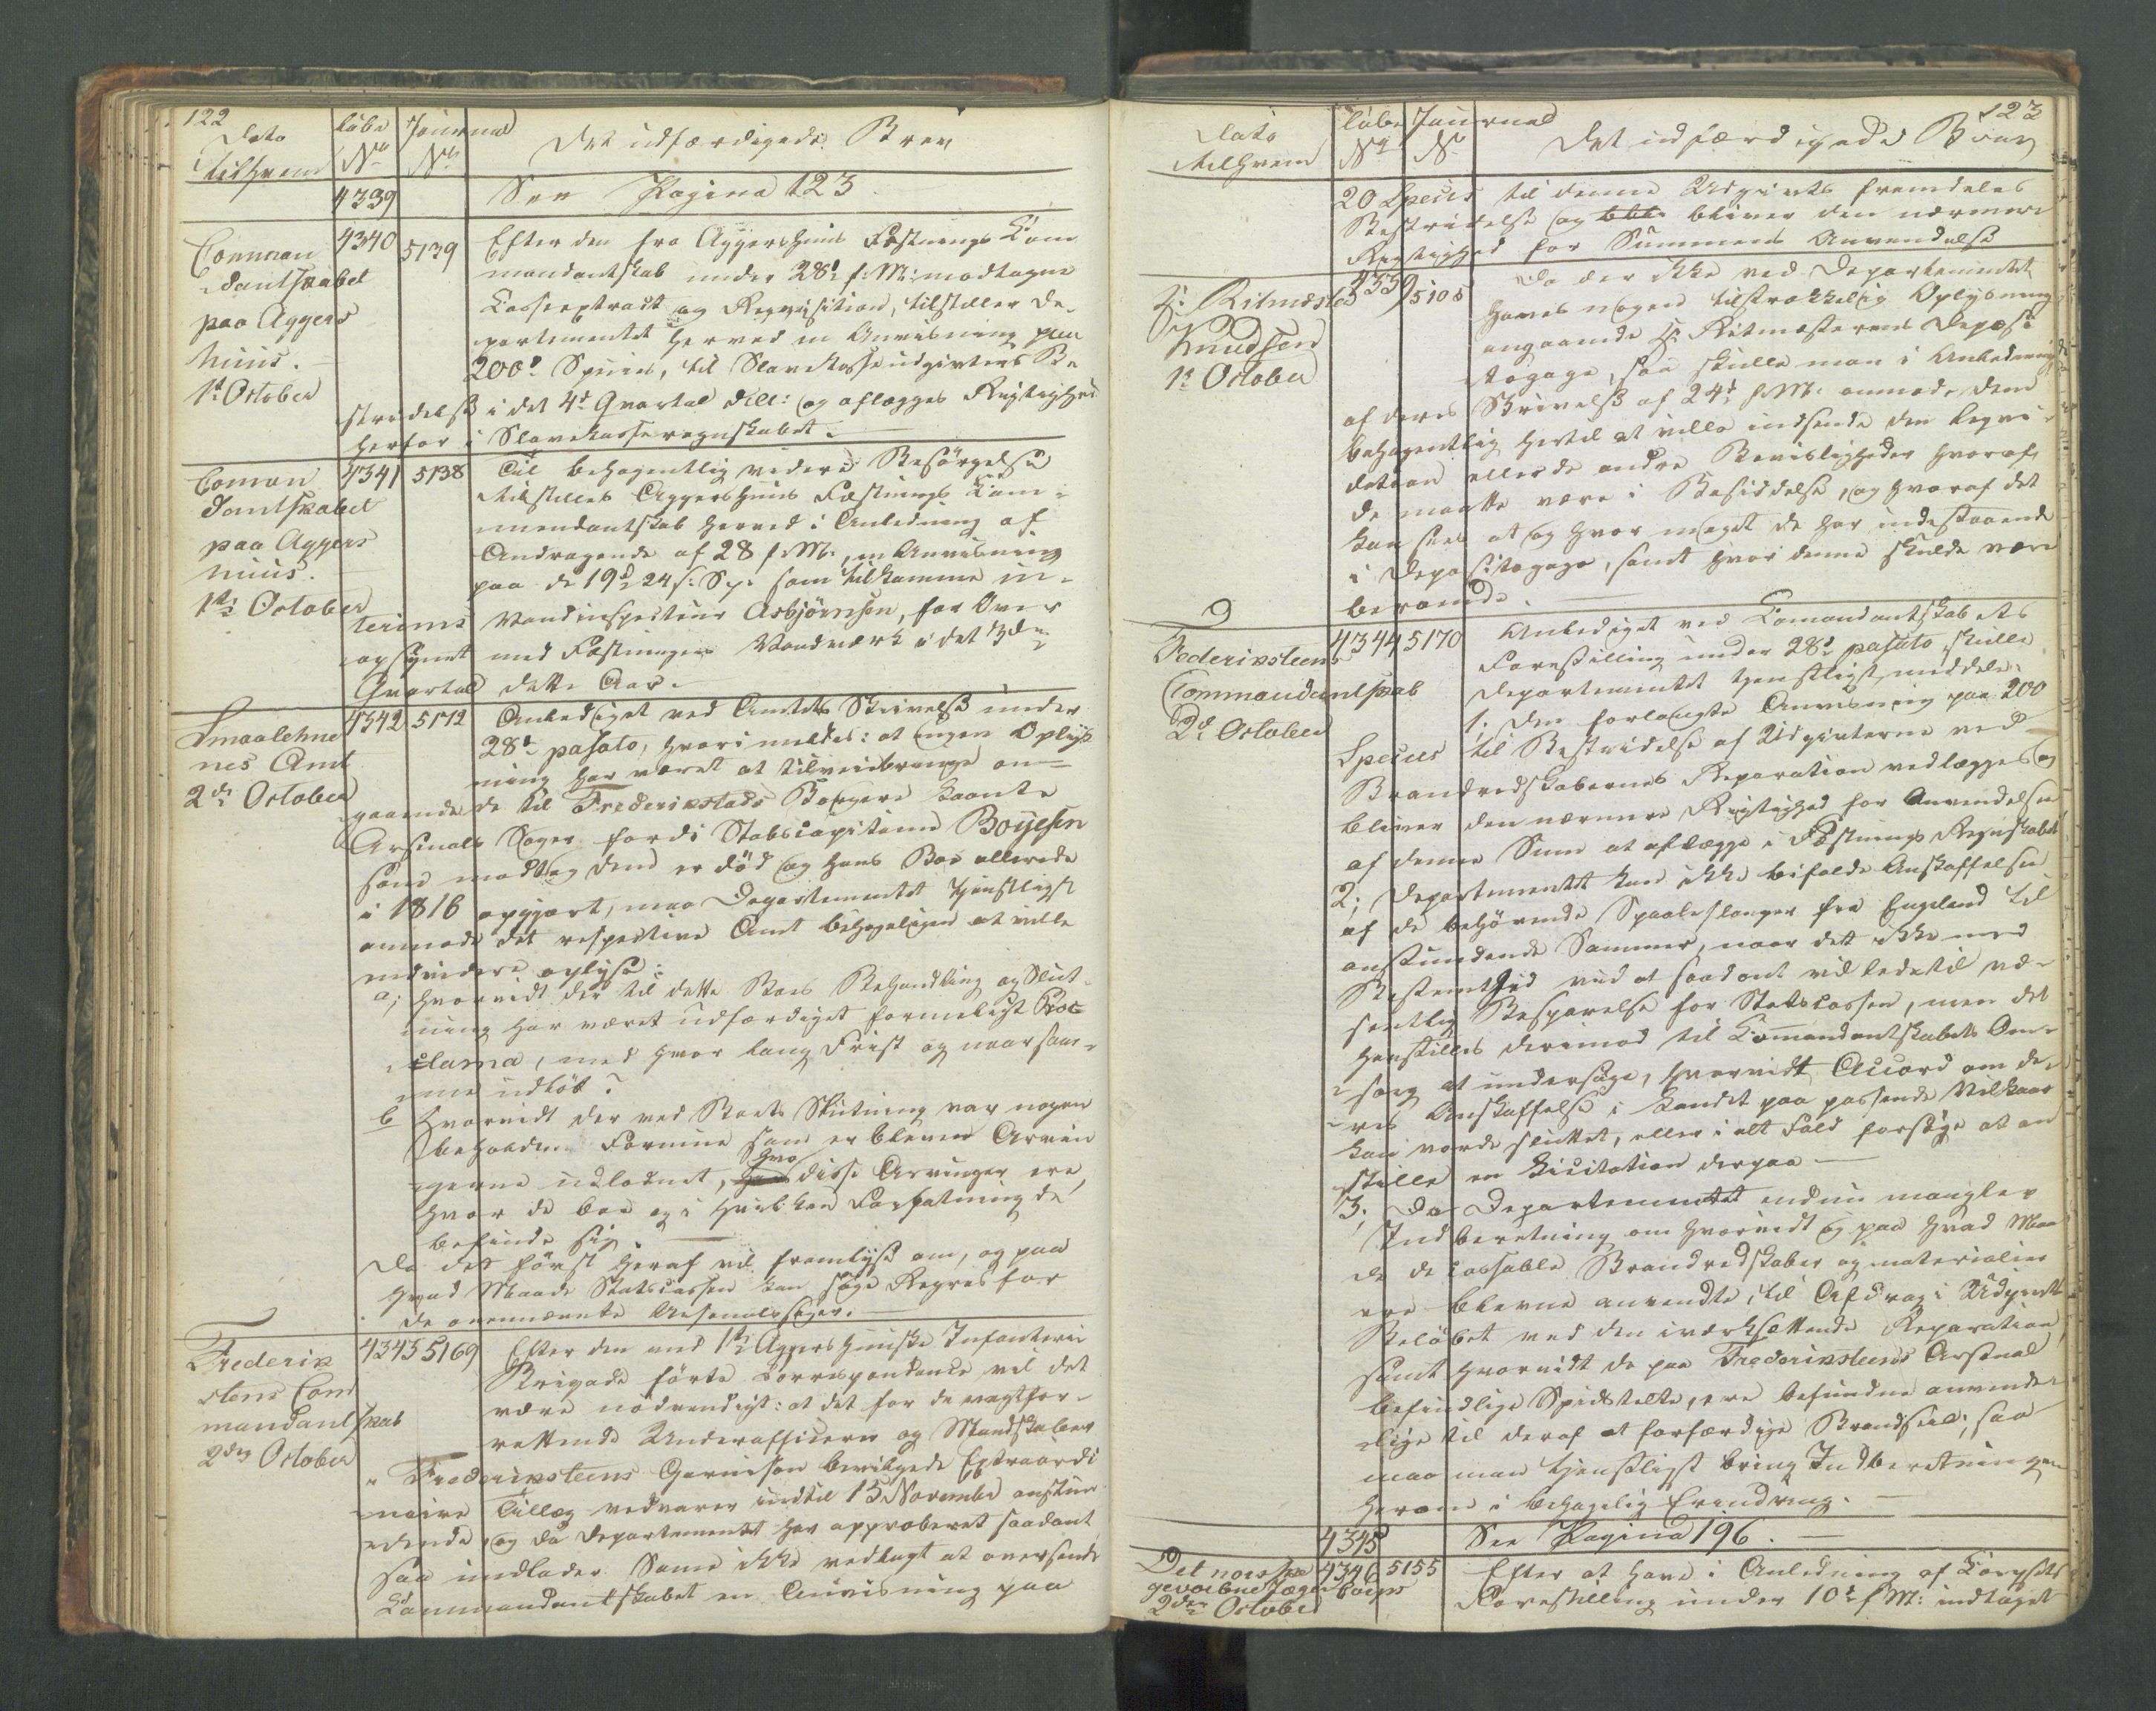 122
Dato
til hvem
Løbe
No
Journal
No
Det udfærdigede Brev
4339
See Pagina 123.
Comman
dantskabet
paa Aggers
huus.
1st October
4340
5139
Efter den fra Aggershuus Fæstnings Com
mandantskab under 28d f: M: modtagne
Casseextract og Reqvisition, tilstiller De-
partementet herved en Anvisning paa
200d Species, til Slavekasseudgivters Be
stridelse i det 4d Qvartal dette: og aflægges Rigtighed
herfor i Slavekasseregnskabet.
Coman
dantskabet
paa Aggers
huus.
1ste October
4341
5138
Til behagentlig videre Besørgelse
tilstilles Aggershuus Fæstnings Com-
mandantskab herved i Anledning af
Andragende af 28 f: M:, en Anvisning
paa de 19d 24 s: Sp: som tilkomme in-
terims Vandinspecteur Asbjørnsen, for Over
opsynet med Fæstningens Vandværk i det 3die
Qvartal dette Aar.
Smaalehne
nes Amt
2de October
4342
5172
Anlediget ved Amtets Skrivelse under
28d passato, hvori meldes: at ingen Oplys
ning har været at tilveiebringe an=
gaaende de til Frederikstads Borgere laante
Arsenals Sager fordi Stabscapitaine Boyesen
som modtog dem er død og hans Boe allerede
i 1816 opgjort, maa Departementet tjenstligst
anmode det respective Amt behageligen at ville
endvidere oplyse:
a; hvorvidt der til dette Boes Behandling og Slut-
ning har været udfærdiget formeligt Proc
clama, med hvor lang Frist og naar sam-
me udløb?
b hvorvidt der ved Boets Slutning var nogen
beholden Formue som er bleven Arvin
gerne udlodnet, hvo disse Arvinger ere,
hvor de boe og i hvilken Forfatning de
befinde sig.
Da det først heraf vil fremlyse om, og paa
hvad Maade Statscassen kan søge Regres for
de ovennævnte Arsenalssager.
Frederik
stens Com
mandantskab
2den October
4343
5169
Efter den med 1ste Aggershuusske Infanterie
Brigade førte Correspondance vil det
være nødvendigt: at det for de vagtfor-
rettende Underofficerer og Mandskaber
" Frederiksteens Garnison bevilgede Extraordi
naire Tillæg vedvarer indtil 13 November anstun
dende, og da Departementet har approberet saadant
saa undlader Samme ikke vedlagt at oversende
Commandantskabet en Anvisning paa
123
Dato
til hvem
Løbe
No
Journal
No
Det udfærdigede Brev
20 Species til denne Udgivts fremdeles
Bestridelse og bliver den nærmere
Rigtighed for Summens Anvendelse
Hr: Ritmester
Knudsen
1st October
4339
5108
Da der ikke ved Departementet
haves nogen tilstrækkelig Oplysning
angaaende Hr: Ritmesterens Deposi
togage, saa skulle man i Anledning
af deres Skrivelse af 24d f: M: anmode dem
behagentlig hertil at ville indsende den Liqvi-
dation eller de andre Beviisligheder hvoraf
de maatte være i Besiddelse, og hvoraf det
kan sees at og hvor meget de har indestaaende
i Depositogage, samt hvor denne skulde være
beroende.
Federiksteens
Commandantskab
2d October
4344
5170
Anlediget ved Comandantskabets
Forestilling under 28d passato skulle
Departementet tjenstligst meddele:
1. Den forlangte Anvisning paa 200
Species til Bestridelse af Udgivterne ved
Brandredskabernes Reparation vedlægges og
bliver den nærmere Rigtighed for Anvendelsen
af denne Sum at aflægge i Fæstnings Regnskabet
2; Departementet kan ikke bifalde Anskaffelsen
af de behøvende Spøuteslanger fra Engeland til
anstundende Sommer, naar det ikke med
Bestemthed vides at saadant vil lede til væ-
sentlig Besparelse for Statscassen, men det
henstilles derimod til Comandantskabets Om-
sorg at undersøge, hvorvidt Accord om de-
res Anskaffelse i Landet paa passende Vilkaar
kan vorde sluttet, eller i alt Fald forsøge at an
stille en Licitation derpaa
3; Da Departementet endnu mangler
Indberetning om hvorvidt og paa hvad Maa
de de cassable Brandredskaber og materialier
ere blevne anvendte, til Afdrag i Udgivts
Beløbet ved den iværksættende Reparation,
samt hvorvidt de paa Frederiksteens Arsenal
befindlige Spidstelte, ere befundne anvende-
lige til deraf at forfærdige Brandseil, saa
maa man tjenstligst bringe Indberetningen
herom i behagelig Erindring.
4345
See Pagina 196.
Det norske
gevorbne Jæger
Corps
2den October
4346
5155
Efter at have i Anledning af Corpsets
Forestilling under 10d f M: indtaget